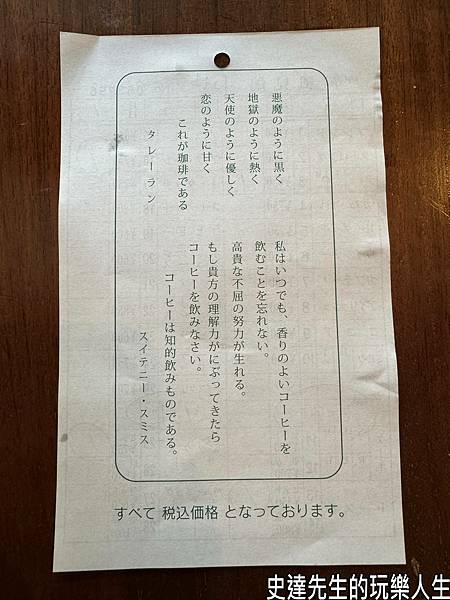 悪魔のように黒く
地獄のように熱く
天使のように優しく
恋のように甘く
これが珈琲である
タレーラン
私はいつでも、香りのよいコーヒーを
飲むことを忘れない。
高貴な不屈の努力が生れる。
もし貴方の理解力がにぶってきたら
コーヒーを飲みなさい。
コーヒーは知的飲みものである。
スイテニー・スミス
すべて 税込価格 となっております。
史達先生的玩樂人生